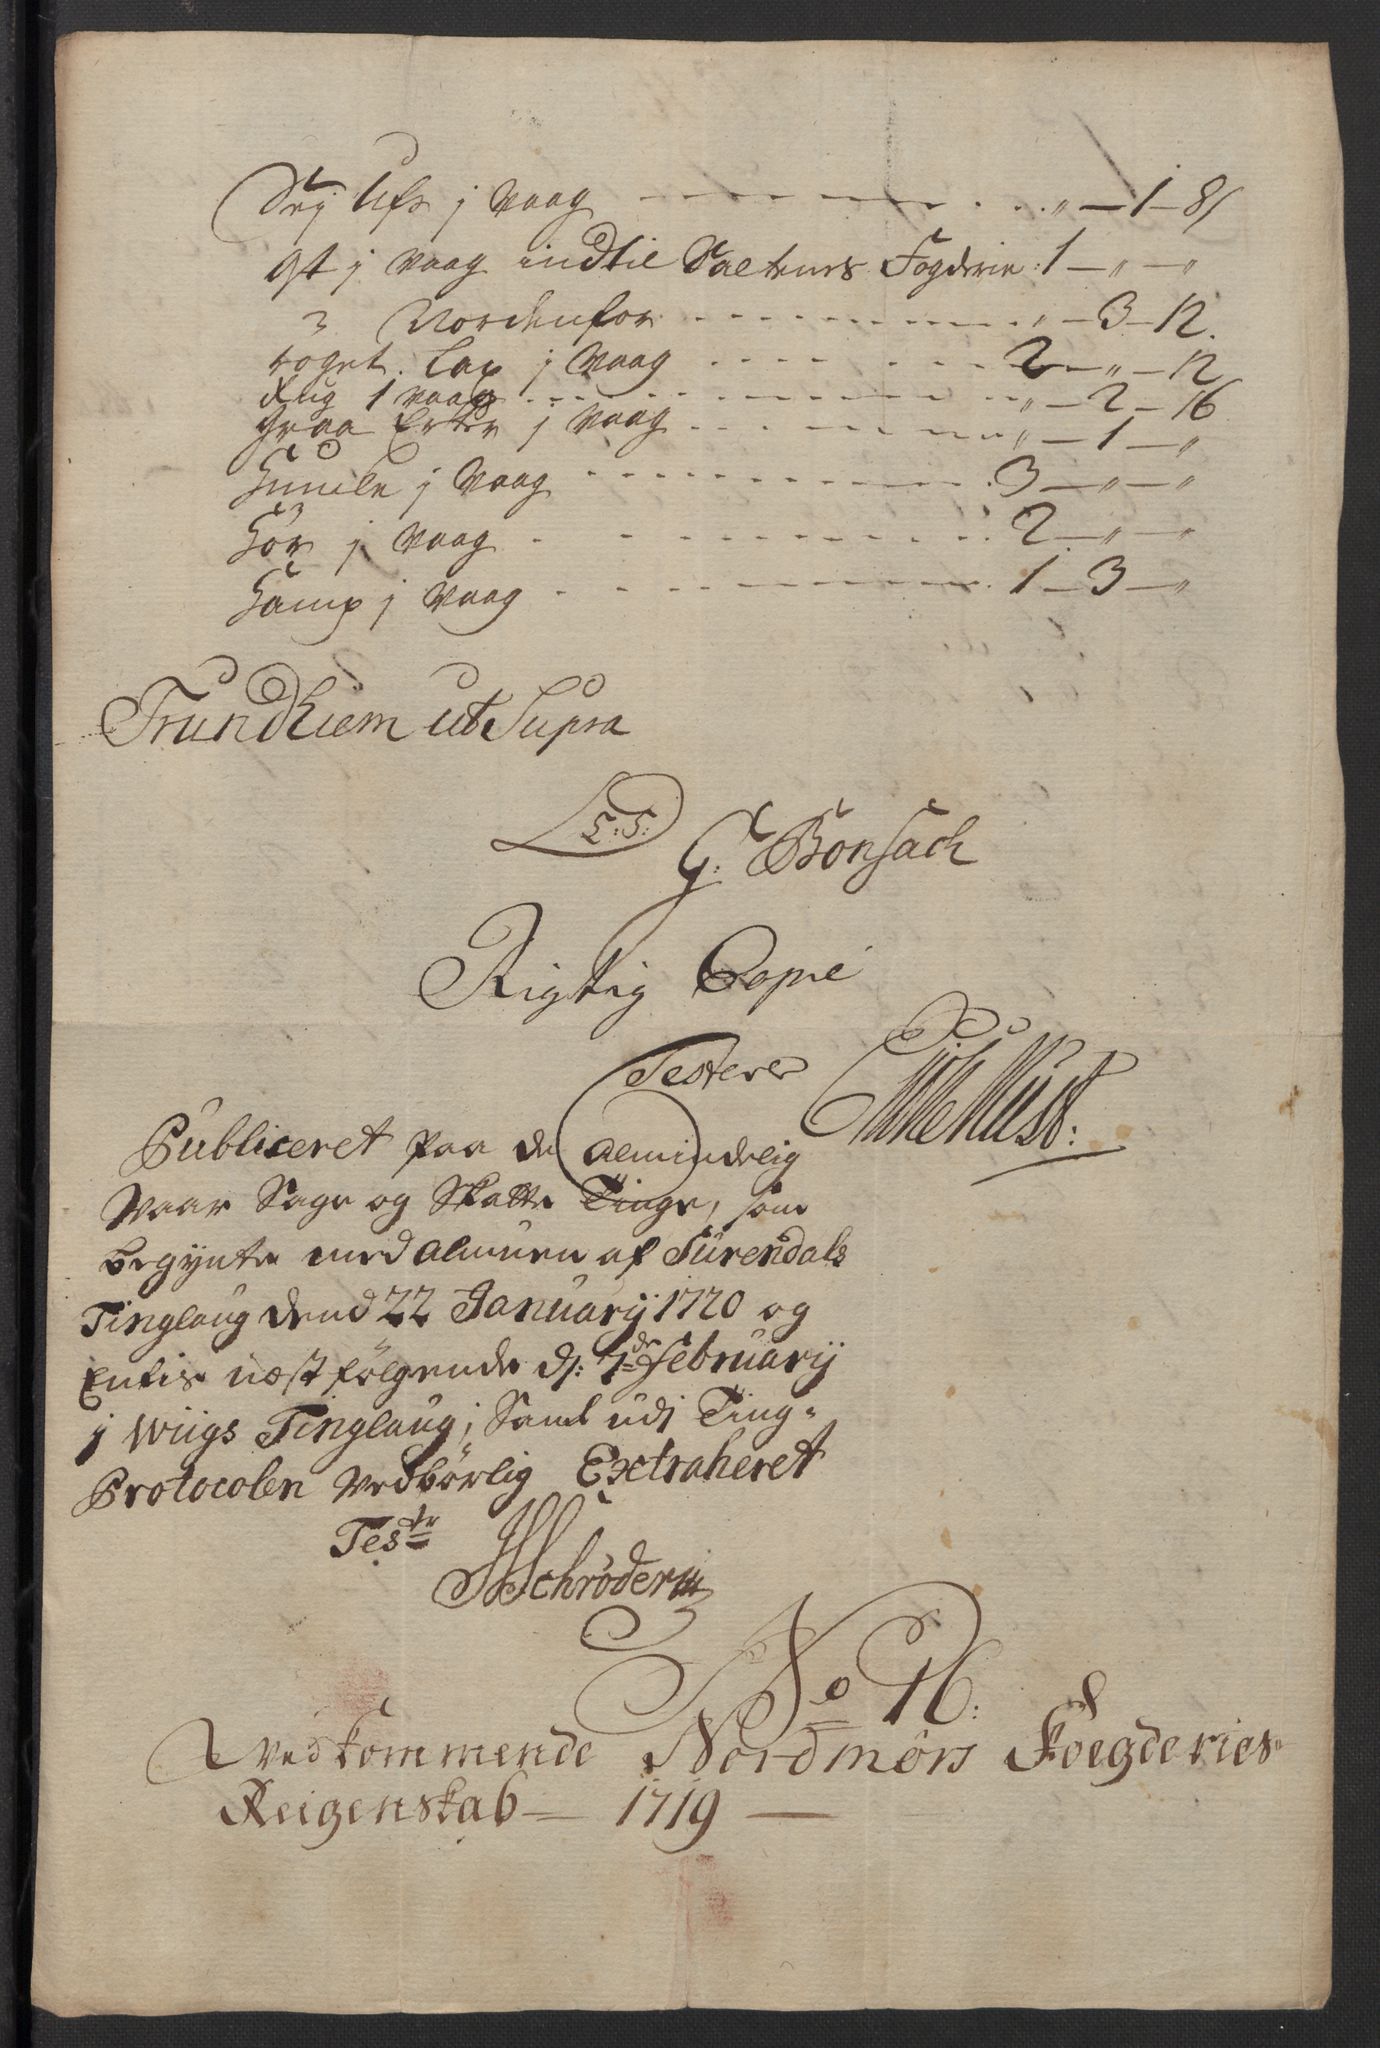 Sej Ufs j Vaag - - - „ – 1 – 8
Ost j Vaag indtil Saltens Fogderie : 1 – „ – „
Nordenfor - - - „ – 3 – 12.
røget Lax j Vaag - - - 2 – „ – 12
Rug 1 Vaag - - - „ – 2 – 16
graa Erter j Vaag - - - „ – 1 – „
Humle j Vaag - - - 3 – „ – „
Hör j Vaag - - - 2 – „ – „
Hamp j Vaag - - - 1 – 3 – „
Trundhiem ut Supra
L: S:
G: Bonsach
Rigtig Copie
Testerer
Publiceret paa de almindelig
Vaar Sage og Skatte Tinge, som
begynte med Almuen af Surendals
Tinglaug dend 22 January 1720 og
Entis næst følgende d: 7de February
j Wiigs Tinglaug; Samt udj Ting-
Protocolen Vedbørlig Extraheret
Testr
Schrøder
No 16:
Vedkommende Nordmörs Foegderies
Reigenskab – 1719 –